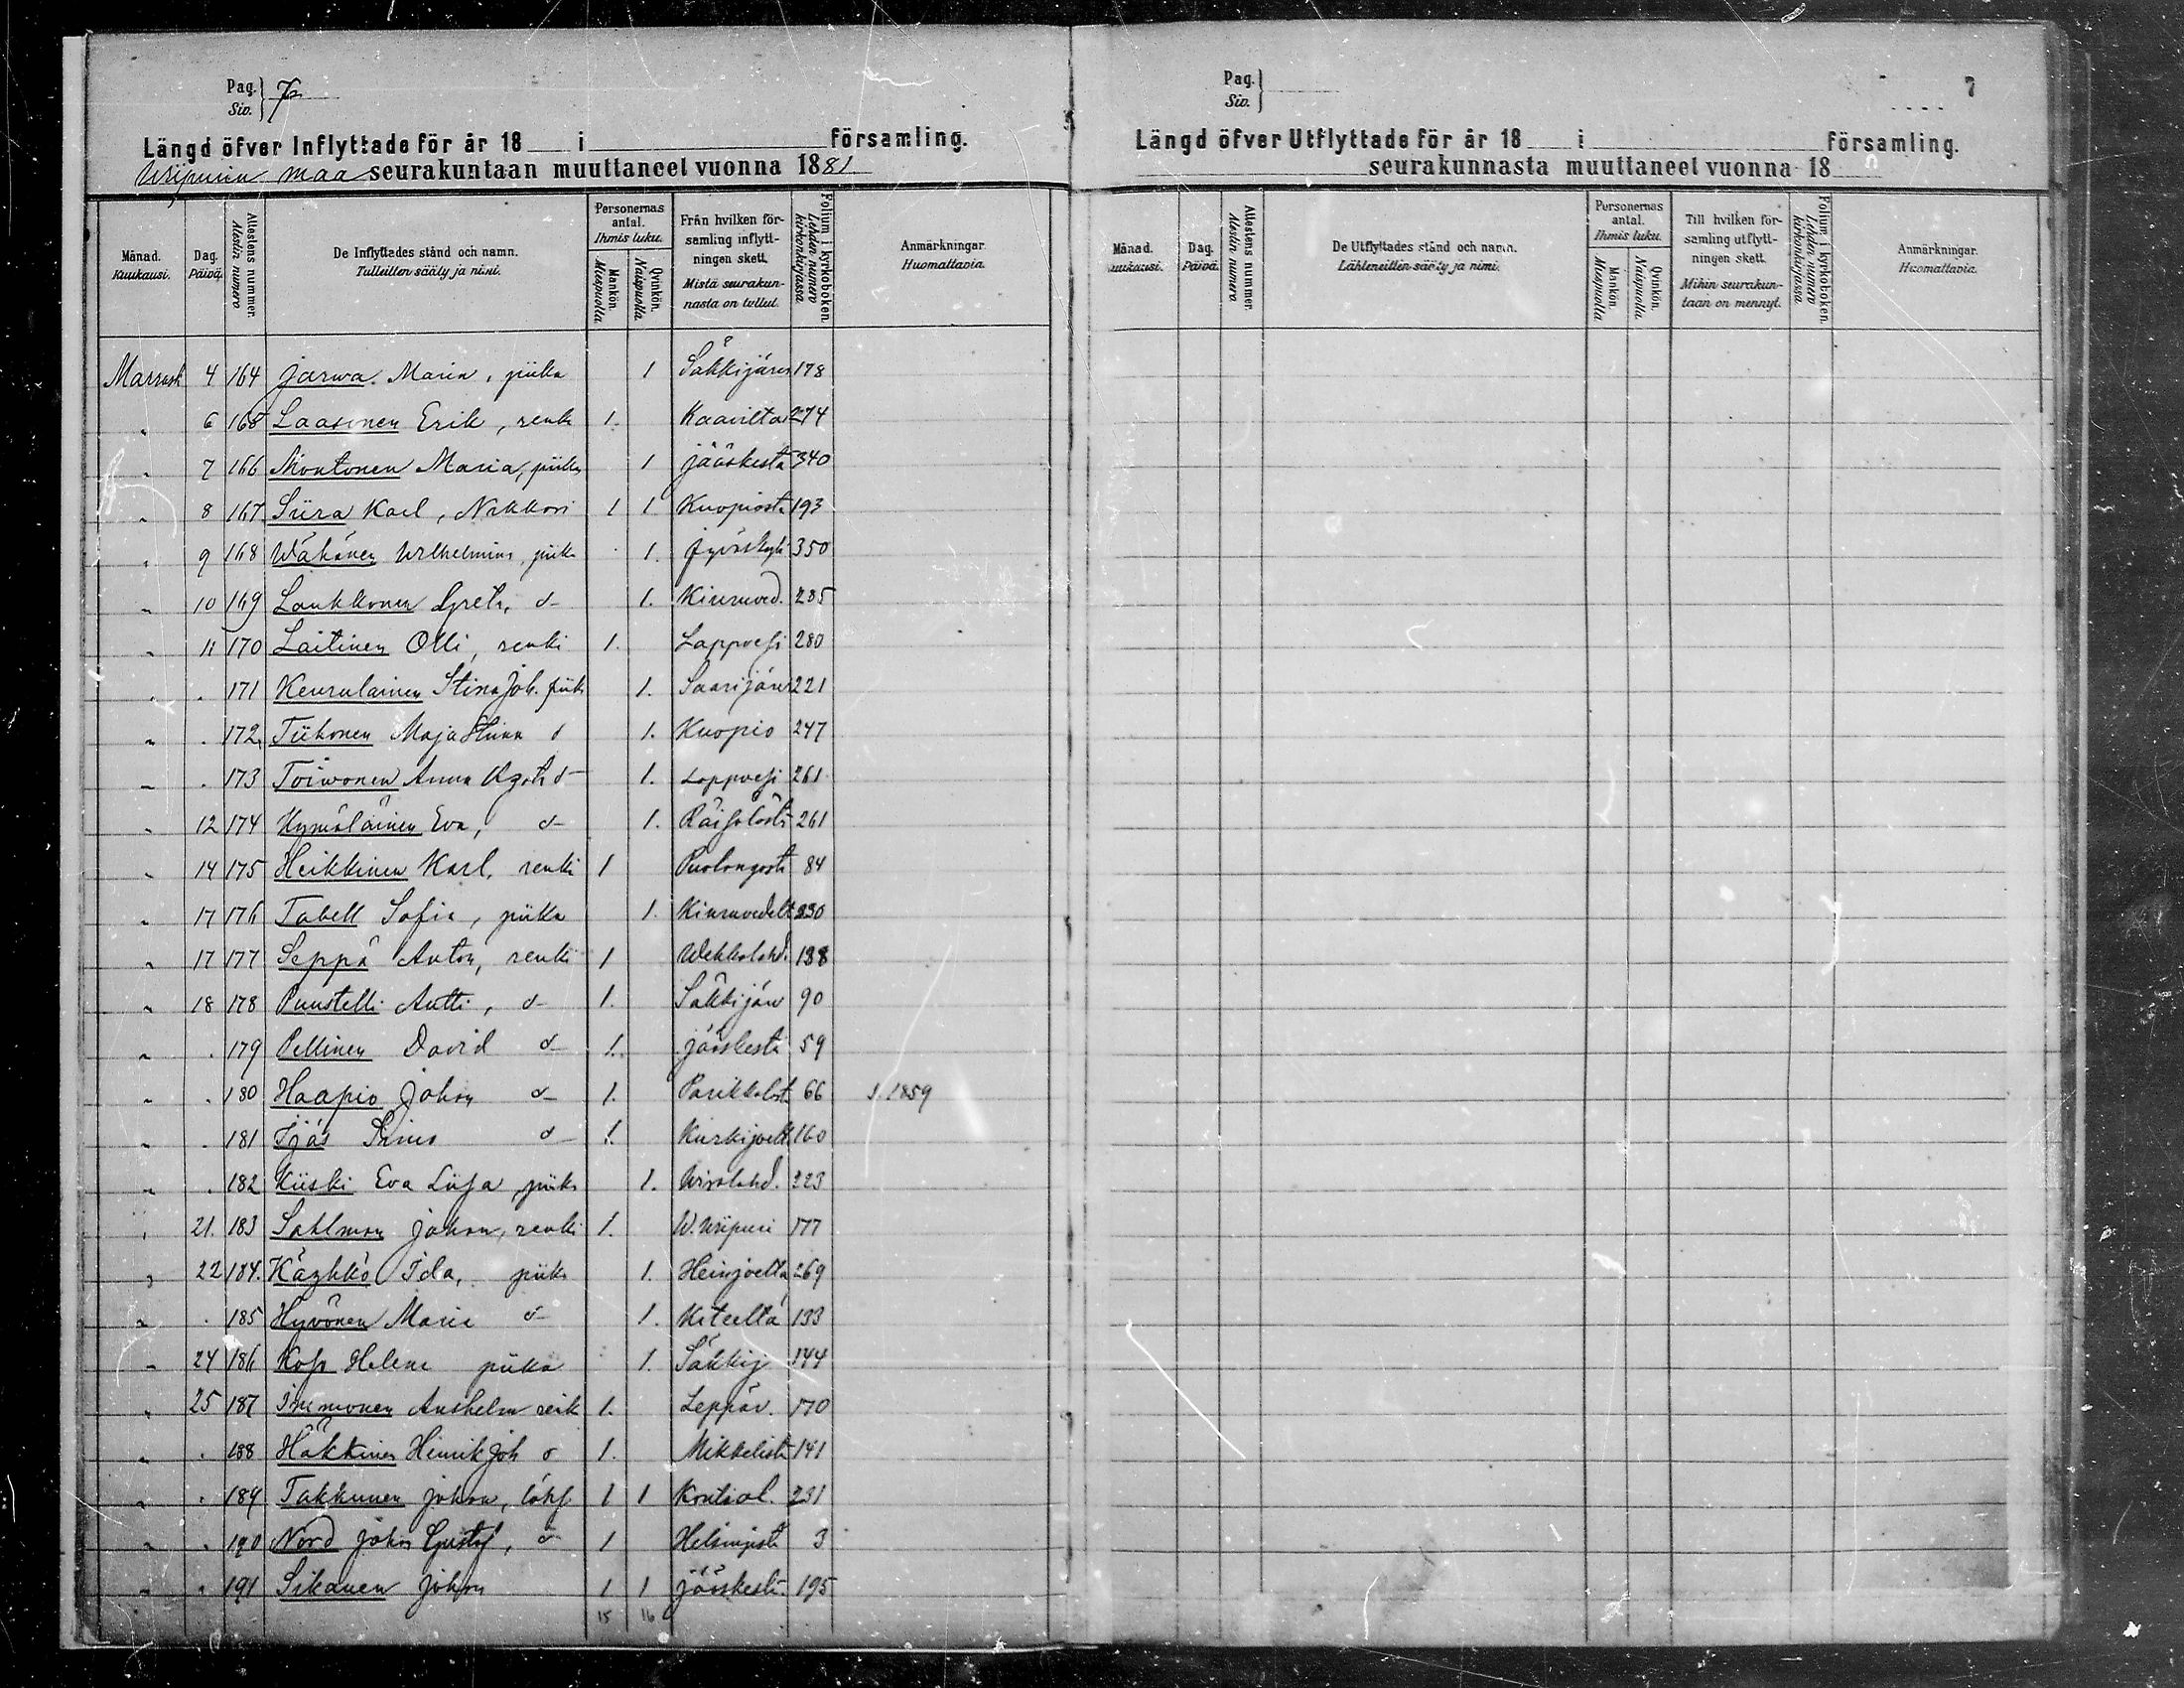 Pag. Siv. } 7
Längd öfver Inflyttade för år 18 i församling.
Wiipurin maa seurakuntaan muuttaneet vuonna 1881
Månad. Kuukausi.
Dag. Päivä.
Attestens nummer. Atestin numero
De Inflyttades stånd och namn. Tulleitten sääty ja nimi.
Personernas antal. Ihmis luku.
Mankön. Miespuolia
Qvinkön. Naispuolia
Från hvilken församling inflyttningen skett. Mistä seurakunnasta on tullut.
Folium i kyrkoboken. Lehden numero kirkonkirjassa.
Anmärkningar. Huomattavia.
Marrask 4 164 Jarwa Maria, piika 1 Säkkijärv 178
" 6 165 Laasonen Erik, renk 1. Kaavilta 274
" 7 166 Montonen Maria, piika 1 Jääskestä 340
" 8 167 Siira Karl, Nahkori 1 1 Kuopiosta 193
" 9 168 Wähönen Wilhelmina, piika 1. Jyväskyl 350
" 10 169 Laukkonen Greta, d- 1. Kiuruved. 285
" 11 170 Laitinen Olli, renki 1. Lappvesi 280
" " 171 Keurulainen Stina Joh. piik 1. Saarijärv 221
" " 172 Tiihonen Maja Stina d 1. Kuopio 247
" " 173 Toiwonen Anna Agata d- 1. Lappvesi 261
" 12 174 Hymäläinen Eva, d- 1. Räisälästä 261
" 14 175 Heikkinen Karl, renki 1 Puolangosta 84
" 17 176 Tabell Sofia, piika 1. Kiuruvedelt 230
" 17 177 Seppä Anton, renki 1 Wehkalahd. 138
" 18 178 Puustelli Antti, d- 1. Säkkijärv 90
" " 179 Pellinen David d- 1. Jääskestä 59
" " 180 Haapio Johan d- 1. Parikkalast 66 1859
" " 181 Ijäs d- 1. Kurkijoelt 160
" " 182 Kiiski Eva Liisa piika 1. Wirolahd. 223
" 21. 183 Sahlman Johan, renki 1. W. Wiipuri 177
" 22 184. Käyhkö Ida, piika 1. Heinjoelta 269
" " 185 Hyvönen Maria d- 1. Kiteeltä 133
" 24 186 Hoss Helena piika 1. Säkkij 144
" 25 187 Immonen Anshelm renk 1. Leppäv. 170
" " 188 Häkkinen Henrik Joh d 1. Mikkelistä 141
" " 189 Takkunen Johan, 1 1 Kontiol. 231
" " 190 Nord Johan Gustaf, d- 1 Helsingistä 3
" " 191 Sikanen Johan 1 1 Jääskestä 195
15 16
Pag. Siv. }
7
Längd öfver Utflyttade för år 18 i församling.
seurakunnasta muuttaneet vuonna 18
Månad. Kuukausi.
Dag. Päivä.
Attestens nummer. Atestin numero
De Utflyttades stånd och namn. Lähteneitten sääty ja nimi.
Personernas antal. Ihmis luku.
Mankön. Miespuolia
Qvinkön. Naispuolia
Till hvilken församling utflyttningen skett. Mihin seurakuntaan on mennyt.
Folium i kyrkoboken. Lehden numero kirkonkirjassa.
Anmärkningar. Huomattavia.